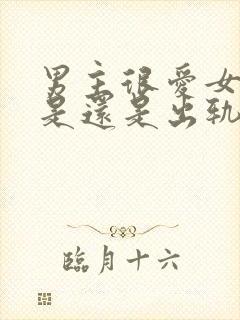 男主很愛女
是還是出軌
臨月十六